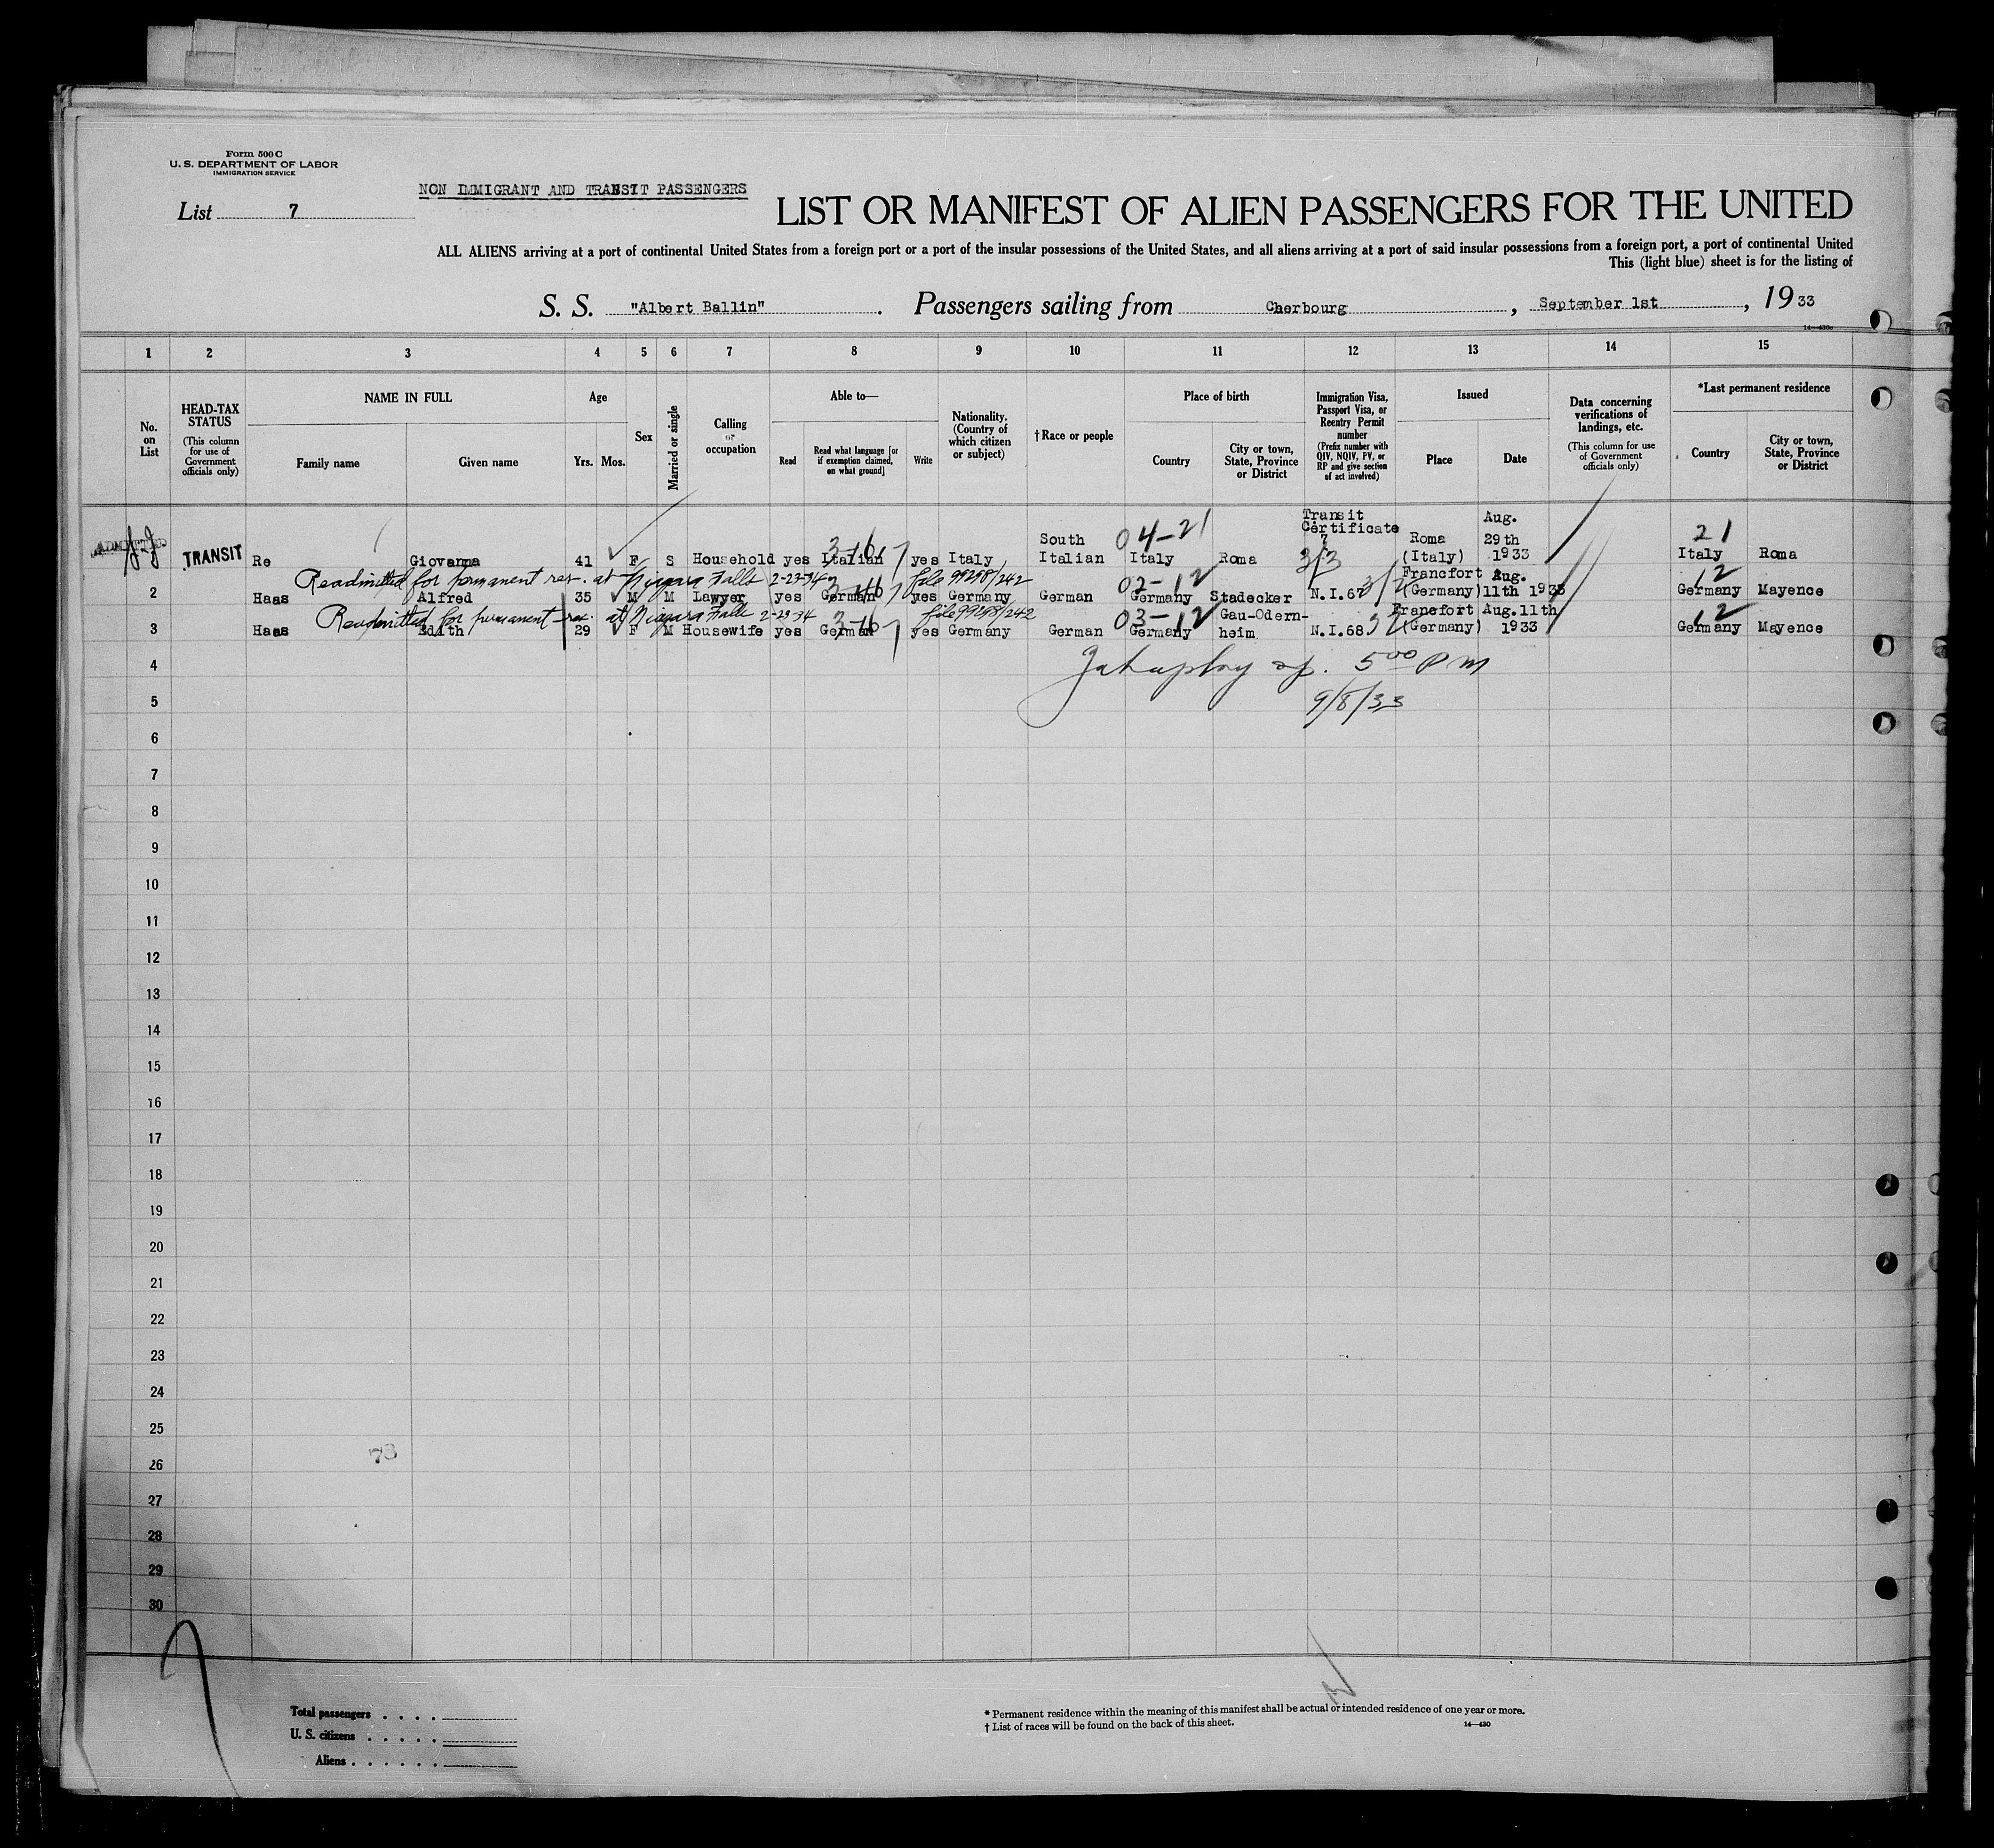 Form 500 C
U. S. DEPARTMENT OF LABOR
IMMIGRATION SERVICE
NON IMMIGRANT AND TRANSIT PASSENGERS
List 7
LIST OR MANIFEST OF ALIEN PASSENGERS FOR THE UNITED
ALL ALIENS arriving at a port of continental United States from a foreign port or a port of the insular possessions of the United States, and all aliens arriving at a port of said insular possessions from a foreign port, a port of continental United
This (light blue) sheet is for the listing of
S. S. "Albert Ballin". Passengers sailing from Cherbourg, September 1st, 1933
14—430c
1 2 3 4 5 6 7 8 9 10 11 12 13 14 15
No. on List
HEAD-TAX STATUS
(This column for use of Government officials only)
NAME IN FULL
Family name Given name
Age
Yrs. Mos.
Sex
Married or single
Calling or occupation
Able to—
Read
Read what language [or if exemption claimed, on what ground]
Write
Nationality. (Country of which citizen or subject)
† Race or people
Place of birth
Country
City or town, State, Province or District
Immigration Visa, Passport Visa, or Reentry Permit number
(Prefix number with QIV, NQIV, PV, or RP and give section of act involved)
Issued
Place Date
Data concerning verifications of landings, etc.
(This column for use of Government officials only)
*Last permanent residence
Country
City or town, State, Province or District
ADMITTED
TRANSIT Re Giovanna 41 F S Household yes Italian yes Italy South Italian Italy Roma Transit Certificate 7 Roma (Italy) Aug. 29th 1933 Italy Roma
3-16 04-21 3/3 21
Readmitted for permanent res. at Niagara Falls 2-23-34 file 99298/242
2 Haas Alfred 35 M M Lawyer yes German yes Germany German Germany Stadecker N.I.67 Francfort (Germany) Aug. 11th 1933 Germany Mayence
3-16 02-12 3/2 12
Readmitted for permanent res. at Niagara Falls 2-23-34 file 99298/242
3 Haas Edith 29 F M Housewife yes German yes Germany German Germany Gau-Odernheim N.I.68 Francfort (Germany) Aug. 11th 1933 Germany Mayence
3-16 03-12 12
4
5 00 P M
5
9/8/33
6
7
8
9
10
11
12
13
14
15
16
17
18
19
20
21
22
23
24
25
73
26
27
28
29
30
Total passengers . . . .
U. S. citizens . . . . .
Aliens . . . . . .
* Permanent residence within the meaning of this manifest shall be actual or intended residence of one year or more.
† List of races will be found on the back of this sheet.
14—430